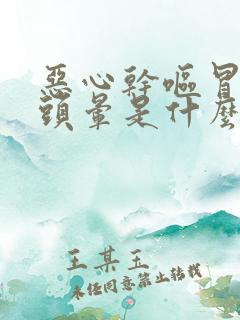 惡心幹嘔冒
頭暈是什麼
王某玉
未经同意禁止转载